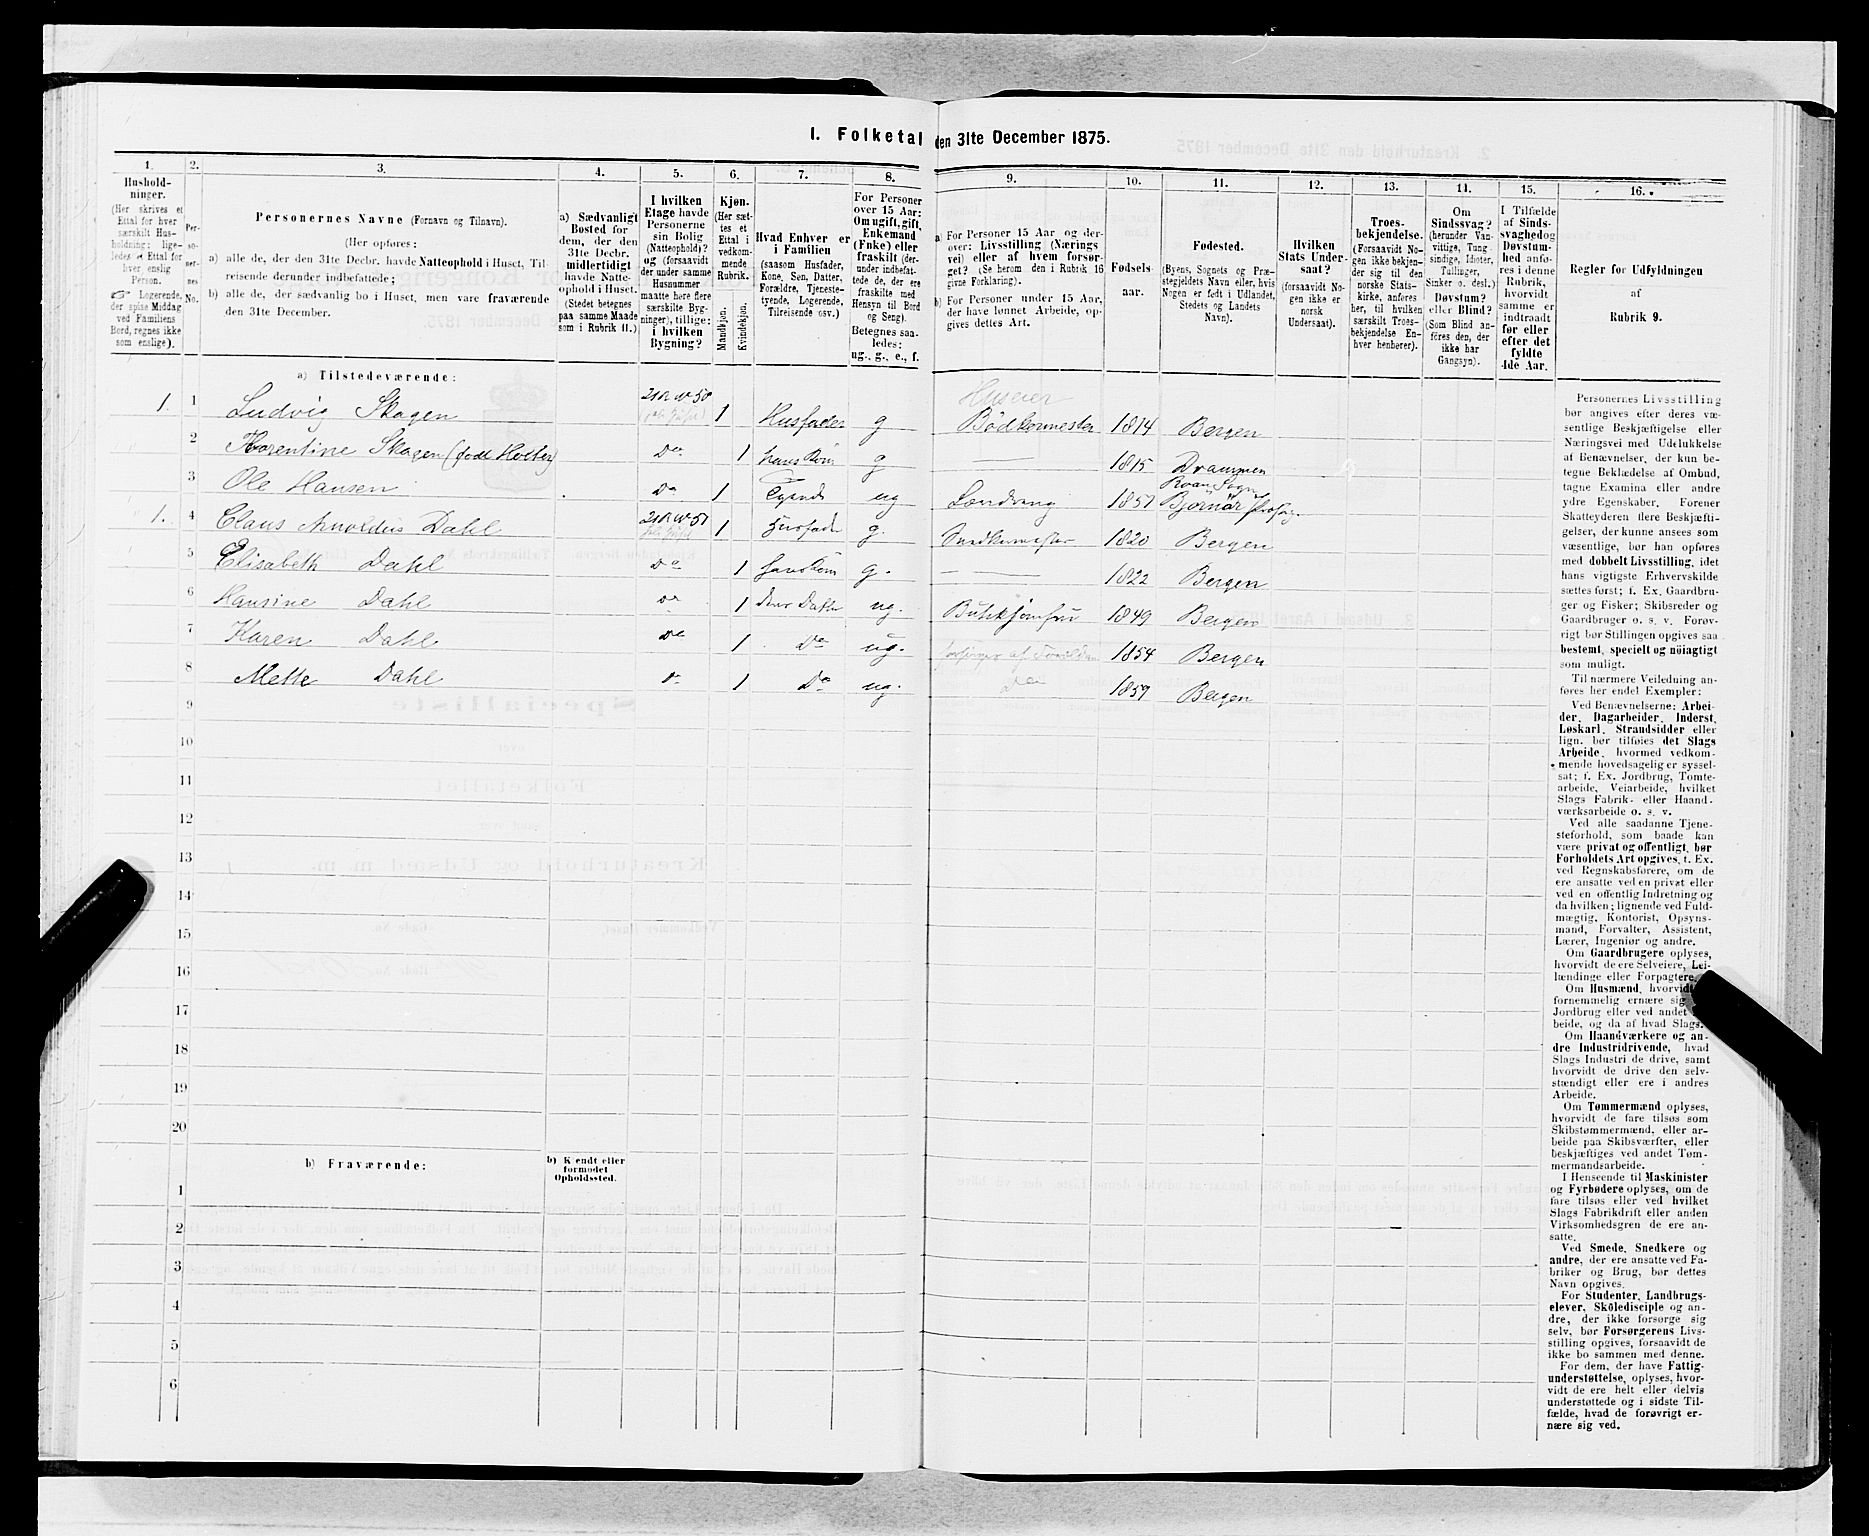 1. Folketal den 31te December 1875.
1.
Hushold-
ninger.
(Her skrives et
Ettal for hver
særskilt Hus-
holdning; lige-
ledes et Ettal for
hver enslig
Person.
Logerende,
der spise Middag
ved Familiens
Bord, regnes ikke
som enslige).
2.
Per-
so-
ner-
nes
No.
3.
Personernes Navne (Fornavn og Tilnavn).
(Her opføres:
a) alle de, der den 31te Decbr. havde Natteophold i Huset, Til-
reisende derunder indbefattede;
b) alle de, der sædvanlig bo i Huset, men vare fraværende
den 31te December.
4.
a) Sædvanligt
Bosted for
dem, der den
31te Decbr.
midlertidigt
havde Natte-
ophold i Huset.
(Stedet betegnes
paa samme Maade
som i Rubrik 11.)
5.
I hvilken
Etage havde
Personerne
sin Bolig
(Natteophold)?
og (forsaavidt
der under samme
Husnummer
maatte høre flere
særskilte Byg-
ninger), tillige:
i hvilken
Bygning?
6.
Kjøn.
(Her sæt-
tes et
Ettal i
vedkom-
mende
Rubrik.
Mandkjøn.
Kvindekjøn.
7.
Hvad Enhver er
i Familien
(saasom Husfader,
Kone, Søn, Datter,
Forældre, Tjeneste-
tyende, Logerende,
Tilreisende osv.)
8.
For Personer
over 15 Aar:
Om ugift, gift,
Enkemand
(Enke) eller
fraskilt (der-
under indbefat-
tede de, der ere
fraskilte med
Hensyn til Bord
og Seng).
Betegnes saa-
ledes:
ug., g., e., f.
9.
a) For Personer 15 Aar og der-
over: Livsstilling (Nærings
vei) eller af hvem forsør-
get? (Se herom den i Rubrik 16
givne Forklaring).
b) For Personer under 15 Aar,
der have lønnet Arbeide, op-
gives dettes Art.
10.
Fødsels-
aar.
11.
Fødested.
(Byens, Sognets og Præ-
stegjeldets Navn eller, hvis
Nogen er født i Udlandet,
Stedets og Landets
Navn).
12.
Hvilken
Stats Under-
saat?
(forsaavidt No-
gen ikke er
norsk
Undersaat).
13.
Troes-
bekjendelse.
(Forsaavidt No-
gen ikke bekjen-
der sig til den
norske Stats-
kirke, anføres
her, til hvilken
særskilt Troes-
bekjendelse En-
hver henhører).
14.
Om
Sindssvag?
(herunder Van-
vittige, Tung-
sindige, Idioter,
Tullinger,
Sinker o. desl.)
Døvstum?
eller Blind?
(Som Blind an-
føres den, der
ikke har
Gangsyn).
15.
I Tilfælde
af Sinds-
svaghed og
Døvstum-
hed anfø-
res i denne
Rubrik,
hvorvidt
samme er
indtraadt
før eller
efter det
fyldte
4de Aar.
16.
Regler for Udfyldningen
af
Rubrik 9.
a) Tilstedeværende:
Huseier
1. 1 Ludvig Skagen 1 Husfader g Bødkermester 1814 Bergen
2 Karentine Skagen (født Holter) Do 1 hans Kone g — 1815 Drammen
3 Ole Hansen Do 1 Tyende ug 1857 Roan Sogn
Bjørnør
1. 4 Claus Arnoldus Dahl 1 Husfader g. 1820 Bergen
5 Elisabeth Dahl Do 1 hans Kone g. — 1822 Bergen
6 Hansine Dahl Do 1 deres Datter ug. Butikjomfru 1849 Bergen
7 Karen Dahl Do 1 Do ug. 1854 Bergen
8 Mette Dahl Do 1 Do ug. Do 1859 Bergen
9
10
11
12
13
14
15
16
17
18
19
20
b) Fraværende:
b) Kjendt eller
formodet
Opholdssted.
1
2
3
4
5
6
Personernes Livsstilling
bør angives efter deres væ-
sentlige Beskjæftigelse eller
Næringsvei med Udelukkelse
af Benævnelser, der kun be-
tegne Beklædelse af Ombud,
tagne Examina eller andre
ydre Egenskaber. Forener
Skatteyderen flere Beskjæfti-
gelser, der kunne ansees som
væsentlige, bør han opføres
med dobbelt Livsstilling, idet
hans vigtigste Erhvervskilde
sættes først; f. Ex. Gaardbru-
ger og Fisker; Skibsreder og
Gaardbruger o. s. v. Forøv-
rigt bør Stillingen opgives saa
bestemt, specielt og nøiagtigt
som muligt.
Til nærmere Veiledning an-
føres her endel Exempler:
Ved Benævnelserne: Arbei-
der, Dagarbeider, Inderst,
Løskarl, Strandsidder eller
lign. bør tilføies det Slags
Arbeide, hvormed vedkom-
mende hovedsagelig er syssel-
sat; f. Ex. Jordbrug, Tomte-
arbeide, Veiarbeide, hvilket
Slags Fabrik- eller Haand-
værksarbeide o. s. v.
Ved alle saadanne Tjene-
steforhold, som baade kan
være privat og offentligt, bør
Forholdets Art opgives, f. Ex.
ved Regnskabsførere, om de
ere ansatte ved en privat eller
ved en offentlig Indretning og
da hvilken; lignende ved Fuld-
mægtig, Kontorist, Opsyns-
mand, Forvalter, Assistent,
Lærer, Ingeniør og andre.
Om Gaardbrugere oplyses,
hvorvidt de ere Selveiere, Lei-
lændinge eller Forpagtere.
Om Husmænd, hvorvidt
fornemmelig ernære sig
Jordbrug eller ved andet
beide, og da af hvad Slags.
Om Haandværkere og an-
dre Industridrivende, hvad
Slags Industri de drive, samt
hvorvidt de drive den selv-
stændigt eller ere i andres
Arbeide.
Om Tømmermænd oplyses,
hvorvidt de fare tilsøs som
Skibstømmermænd, eller ar-
beide paa Skibsværfter, eller
beskjæftiges ved andet Tøm-
mermandsarbeide.
I Henseende til Maskinister
og Fyrbødere oplyses, om de
fare tilsøs eller ved hvilket
Slags Fabrikdrift eller anden
Virksomhedsgren de ere an-
satte.
Ved Smede, Snedkere og
andre, der ere ansatte ved Fa-
briker og Brug, bør dettes
Navn opgives.
For Studenter, Landbrugs-
elever, Skoledisciple og an-
dre, der ikke forsørge sig
selv, bør Forsørgerens Livs-
stilling opgives, forsaavidt de
ikke bo sammen med denne.
For dem, der have Fattig-
understøttelse, oplyses, hvor-
vidt de ere helt eller delvis
understøttede og i sidste Til-
fælde, hvad de forøvrigt er-
nære sig ved.